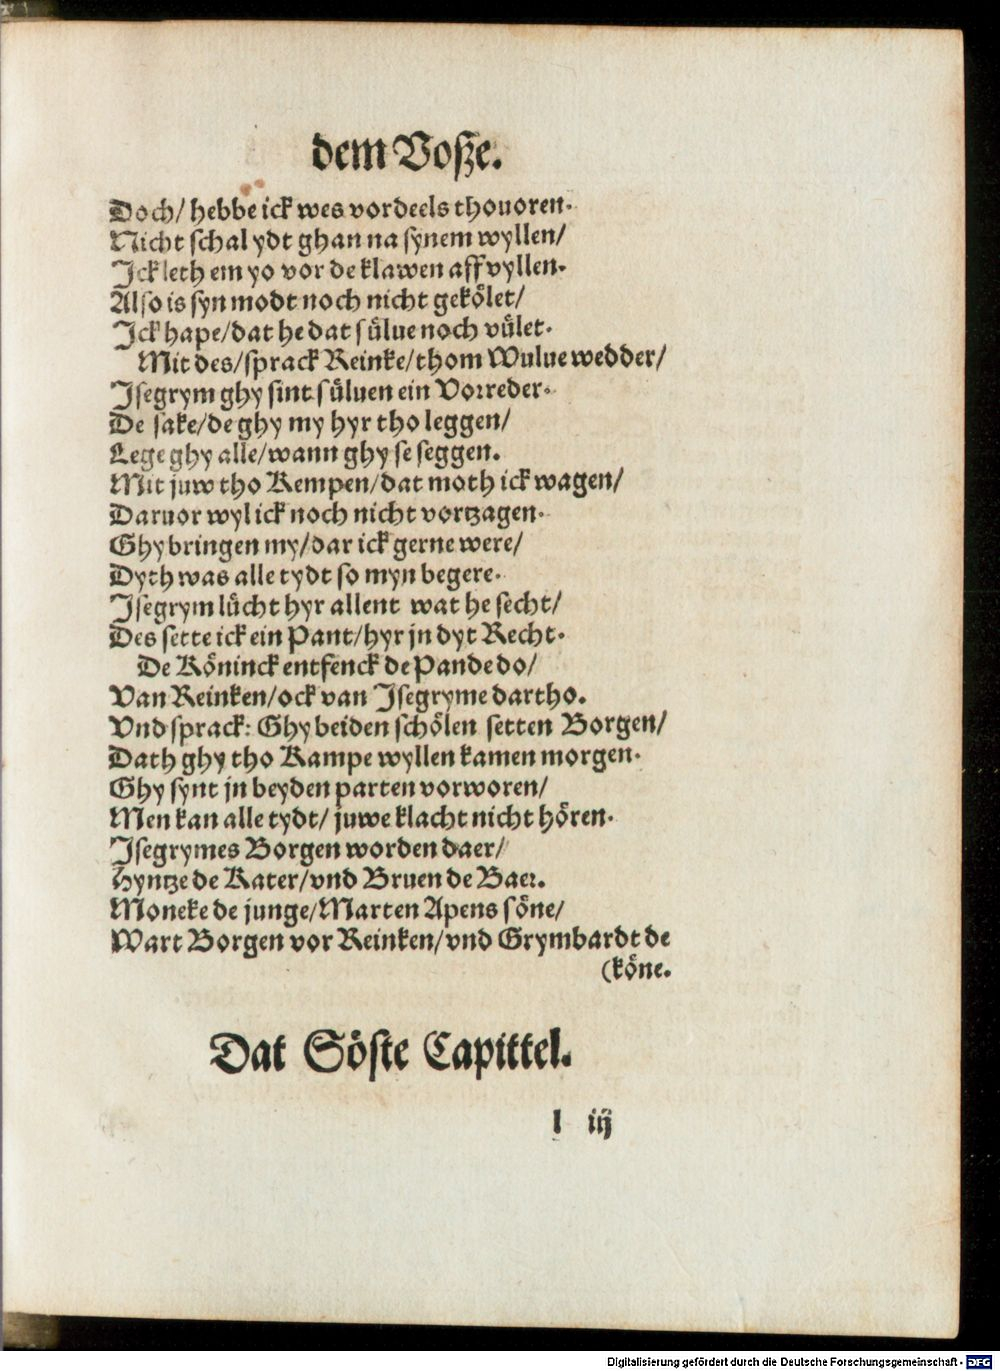 dem Voſze.
Doch/ hebbe ick wes vordeels thouoren.
Nicht ſchal ydt ghan na ſynem wyllen/
Ick leth em yo vor de klawen aff vyllen.
Alſo is ſyn modt noch nicht gekoͤlet/
Ick hape/dat he dat ſuͤlue noch vuͤlet.
Mit des/ſprack Reinke/thom Wulue wedder/
Iſegrym ghy ſint ſuͤluen ein Vorreder.
De ſake/de ghy my hyr tho leggen/
Lege ghy alle/wann ghy ſe ſeggen.
Mit juw tho Kempen/dat moth ick wagen/
Daruor wyl ick noch nicht vortzagen.
Ghy bringen my/dar ick gerne were/
Dyth was alle tydt ſo myn begere.
Iſegrym luͤcht hyr allent wat he ſecht/
Des ſette ick ein Pant/hyr jn dyt Recht.
De Koͤninck entfenck de Pande do/
Van Reinken/ock van Iſegryme dartho.
Vnd ſprack: Ghy beiden ſchoͤlen ſetten Borgen/
Dath ghy tho Kampe wyllen kamen morgen.
Ghy ſynt jn beyden parten vorworen/
Men kan alle tydt/ juwe klacht nicht hoͤren.
Iſegrymes Borgen worden daer/
Hyntze de Kater/vnd Bruen de Baer.
Moneke de junge/Marten Apens ſoͤne/
Wart Borgen vor Reinken/vnd Grymbardt de
(koͤne.
Dat Soͤſte Capittel.
l iij
Digitalisierung gefördert durch die Deutsche Forschungsgemeinschaft - DFG